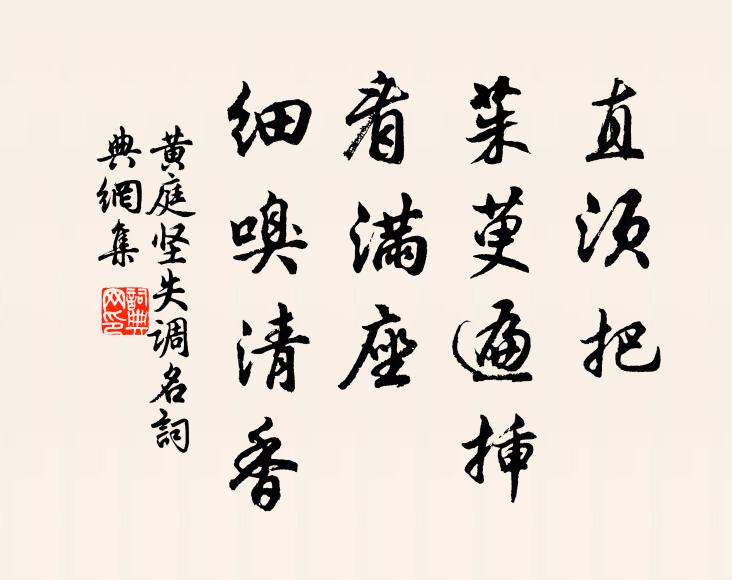 直须把
茱萸遍插
看满座
细嗅清香
黄庭坚失调名詞
典網集
詞典网印